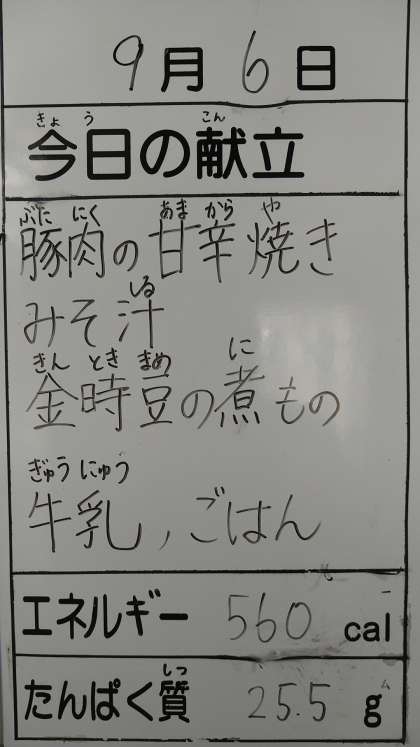 9月6日
きょう こん
今日の献立
ぶた にく あま から や
豚肉の甘辛焼き
しる
みそ汁
きん とき まめ に
金時豆の煮もの
ぎゅう にゅう
牛乳, ごはん
エネルギー 560 cal
しつ
たんぱく質 25.5 g